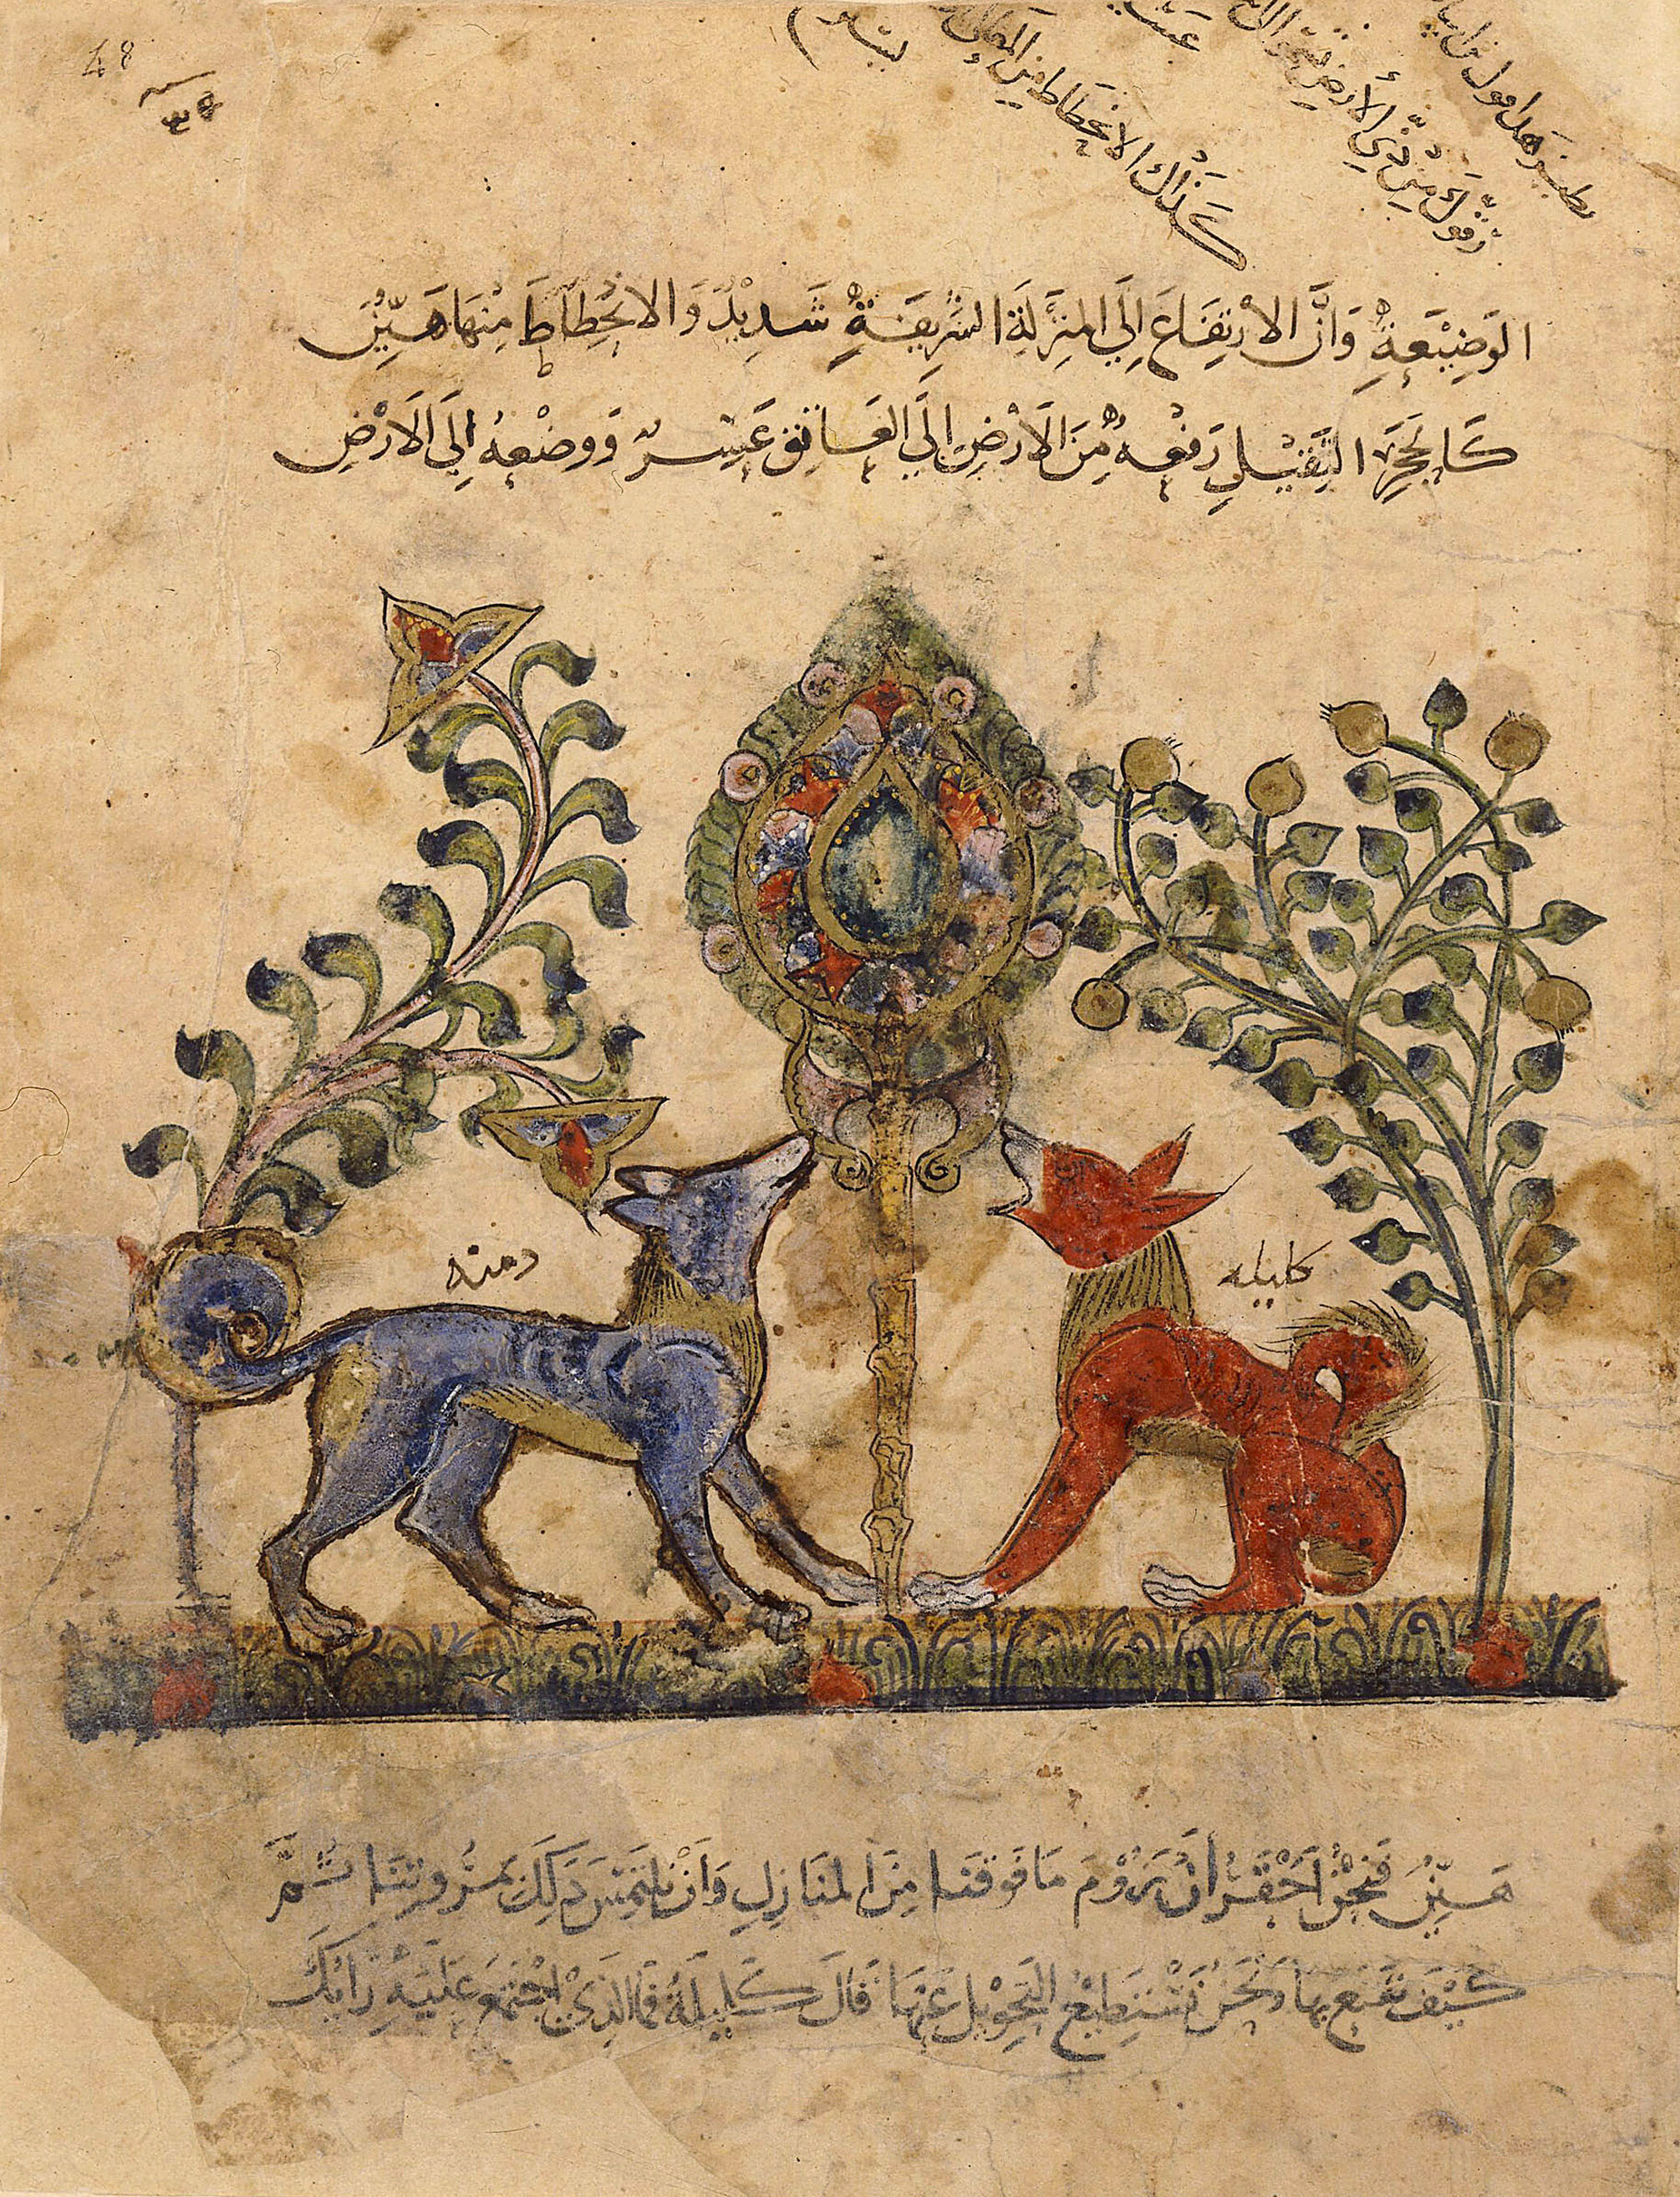 48
الوَضِيْعَةِ وَاَنَّ الاْرتِفَاعَ اِلَي المنزِلَةِ الشَّرِيفَةِ شَدِيْدٌ وَالانْحِطَاطَ مِنْهَا هَيِّنٌ
كَالحَجَرِ الثَّقِيْلِ رَفعُهُ مِنَ الاَرْضِ اِلَي العَاتِقِ عَسِرٌ وَوضْعهُ اِلَي الاَرْضِ
دمنه
كليله
هَيِّنٌ فَنَحْنُ اَحَقُّ اَنْ نَرُوْمَ مَا فَوقَنَا مِنَ المنَازِلِ وَاَنْ نَلتَمِسَ ذَلِكَ بمرُوتِنَا ثُمَّ
كَيْفَ نَقنَعُ بِهَا وَنَحْنُ نَسْتَطِيْعُ التَّحوِيْلَ عَنْهَا قَالَ كَلِيلَةُ فَمَا الَّذِيْ اجْتَمَعَ عَلَيْهِ رَايُكَ